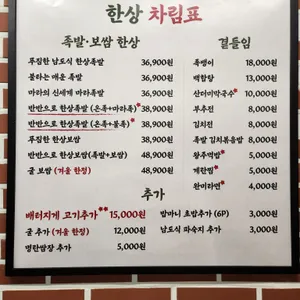 한상 차림표
족발·보쌈 한상
푸짐한 남도식 한상족발 36,900원
불타는 매운 족발 36,900원
마라의 신세계 마라족발 36,900원
반반으로 한상족발 (온족+마라족)* 38,900원
반반으로 한상족발 (온족+불족)* 38,900원
푸짐한 한상보쌈 38,900원
반반으로 한상보쌈(족발+보쌈) 48,900원
굴 보쌈 (겨울 한정) 48,900원
곁들임
쭉쟁이 18,000원
백합탕 13,000원
산더미막국수* 10,000원
부추전 8,000원
김치전 8,000원
족발 김치볶음밥 8,000원
왕주먹밥* 5,000원
계란찜* 5,000원
완미라면* 4,000원
추가
배터지게 고기추가** 15,000원
굴 추가 (겨울 한정) 12,000원
명란쌈장 추가 5,000원
밥마니 초밥추가 (6P) 3,000원
남도식 파숙지 추가 3,000원